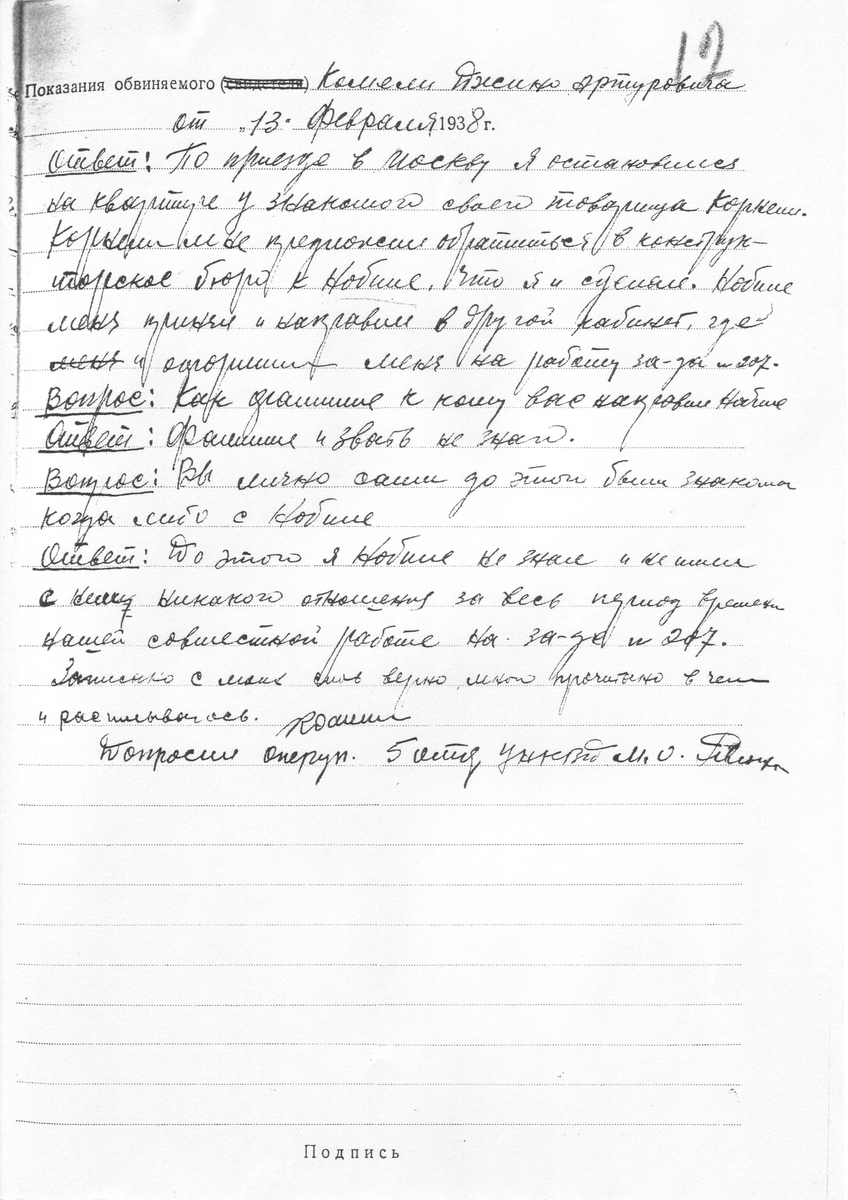 12
Показания обвиняемого (свидетеля) Комели Джино Артуровича
от „13" февраля 1938 г.
Ответ: По приезде в Москву я остановился
на квартире у знакомого своего товарища Корнели.
Корнели мне предложил обратиться в конструк-
торское бюро к Нобиле, что я и сделал. Нобиле
меня принял и направил в другой кабинет, где
меня и оформили меня на работу за-да № 207.
Вопрос: Как фамилие к кому вас направил Нобиле
Ответ: Фамилие и звать не знаю.
Вопрос: Вы лично сами до этого были знакомы
когда либо с Нобиле
Ответ: До этого я Нобиле не знал и не имел
с нему никакого отношения за весь период времени
нашей совместной работе на за-да № 207.
Записано с моих слов верно, мной прочитано в чем
и расписываюсь.
Допросил оперуп. 5 отд УНКВД М.О.
Подпись